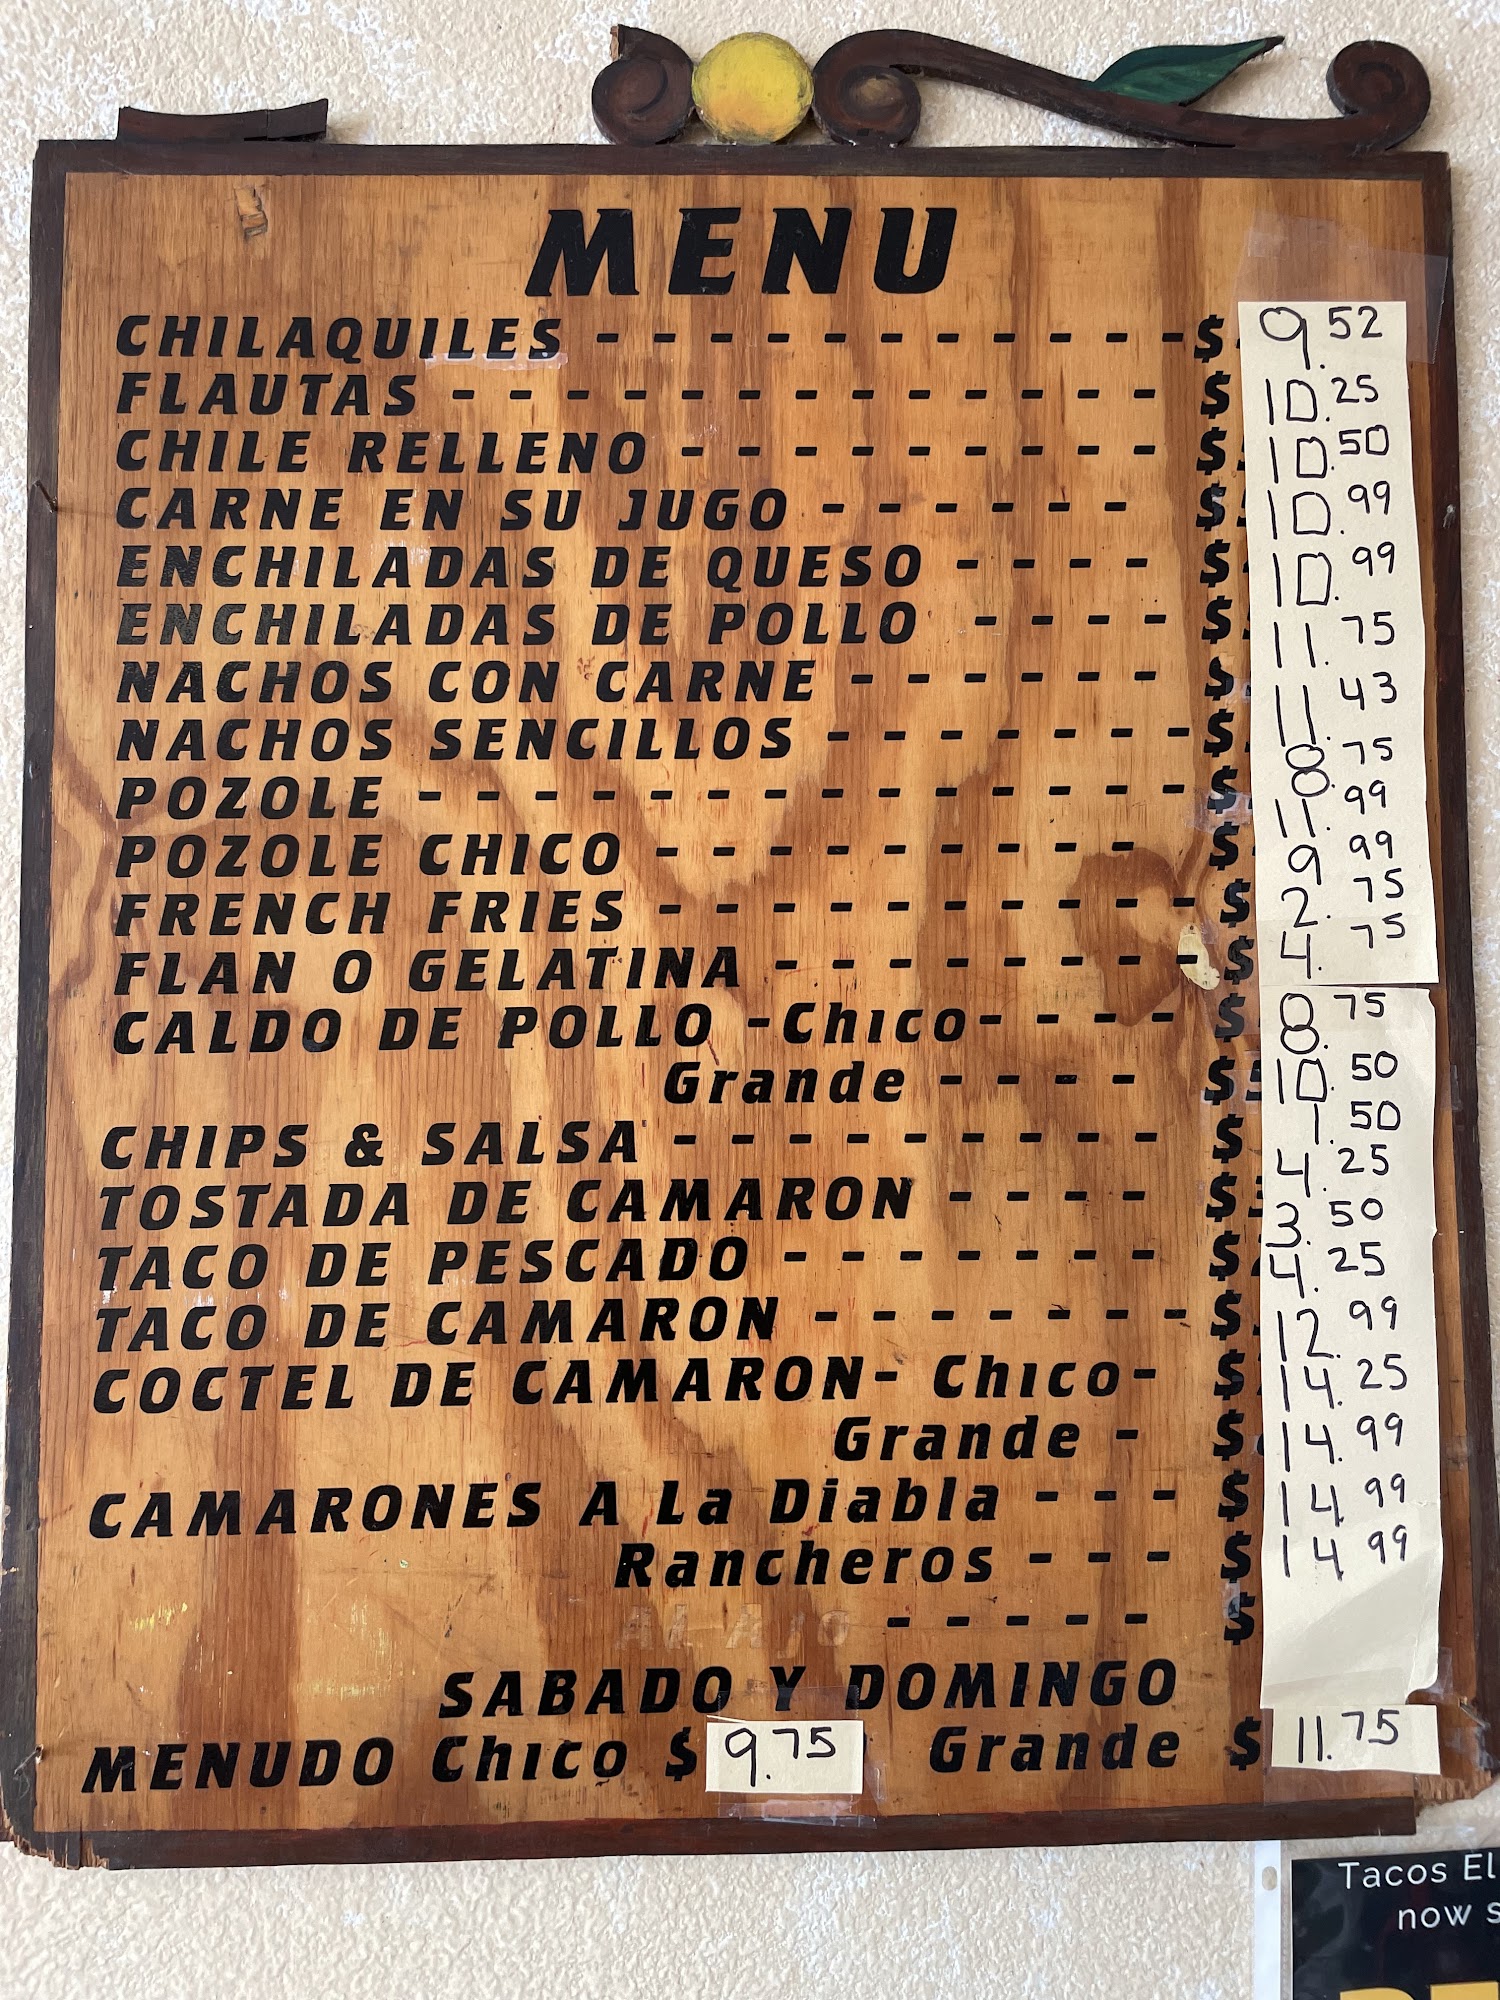 MENU
CHILAQUILES - - - - - - - - - - - $ 9.52
FLAUTAS - - - - - - - - - - - - - $ 10.25
CHILE RELLENO - - - - - - - - - $ 10.50
CARNE EN SU JUGO - - - - - - $ 10.99
ENCHILADAS DE QUESO - - - - $ 10.99
ENCHILADAS DE POLLO - - - - $ 11.75
NACHOS CON CARNE - - - - - - $ 11.43
NACHOS SENCILLOS - - - - - - - $ 8.75
POZOLE - - - - - - - - - - - - - - $ 11.99
POZOLE CHICO - - - - - - - - - $ 9.99
FRENCH FRIES - - - - - - - - - - $ 2.75
FLAN O GELATINA - - - - - - - - $ 4.75
CALDO DE POLLO -Chico- - - - $ 8.75
Grande - - - - $ 10.50
CHIPS & SALSA - - - - - - - - - $ 1.50
TOSTADA DE CAMARON - - - - $ 4.25
TACO DE PESCADO - - - - - - - $ 3.50
TACO DE CAMARON - - - - - - - $ 4.25
COCTEL DE CAMARON- Chico- $ 12.99
Grande - $ 14.25
CAMARONES A La Diabla - - - $ 14.99
Rancheros - - - $ 14.99
AL AJO - - - - - $ 14.99
SABADO Y DOMINGO
MENUDO Chico $ 9.75 Grande $ 11.75
Tacos El
now s